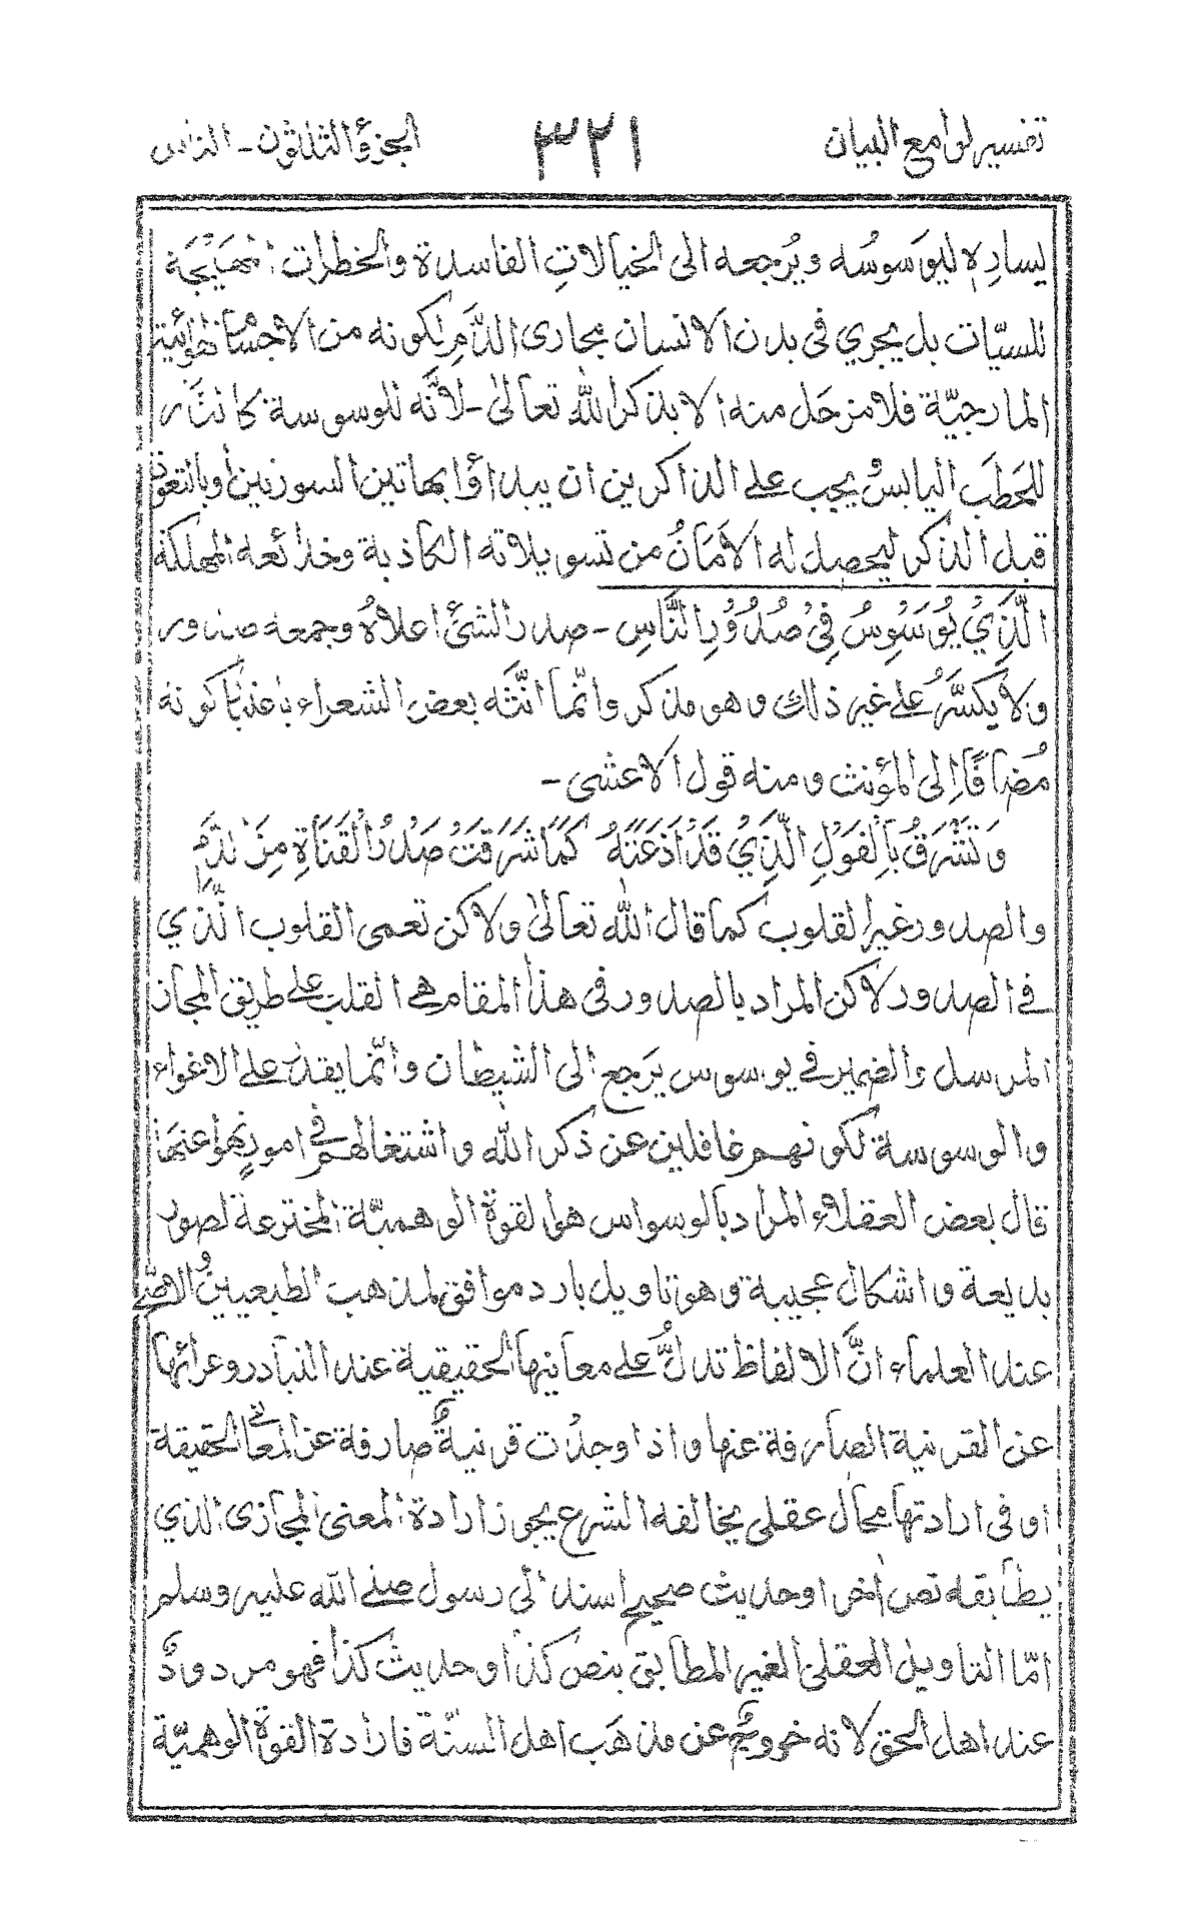 تفسير لوامع البيان ٣٢١ الجزء الثلاثون - الناس
ليوسوسه ويرجعه الى الخيالات الفاسدة والخطرات المهيجة
للسيّات بل يجري في بدن الانسان مجارى الدَّم لكونه من الاجسام الهوائية
المارجيّة فلا مزحل منه الا بذكر الله تعالىٰ - لأنَّه للوسوسة كالنار
للحطَب اليابس يجب على الذاكرين ان يبدأوا بهاتين السورتين او بالتعوذ
قبل الذكر ليحصل له الأمَانُ من تسويلاته الكاذبة وخدائعه المهلكة
الَّذِيْ يُوَسْوِسُ فِيْ صُدُوْرِ النَّاسِ - صدر الشئ اعلاهُ وجمعه صدور
ولا يكسَّرُ على غير ذلك وهو مذكر وانّما انَّثه بعض الشعراء باعتبار كونه
مُضافًا اِلى المؤنث ومنه قول الاعشى -
وَتَشْرَقُ بِالْقَوْلِ الَّذِيْ قَدْ اَذَعْتَهُ كَمَا شَرَقَتْ صَدْرُ الْقَنَاةِ مِنَ الدَّمِ
والصدور غير القلوب كما قال الله تعالىٰ ولاكن تعمى القلوب الَّذي
في الصدور لاكن المراد بالصدور فى هذا المقام هي القلب على طريق المجاز
المرسل والضمير في يوسوس يَرجع الى الشيطان وانّما يقدر على الاغواء
والوسوسة لكونهم غافلين عن ذكر الله واشتغالهم في امور نهوا عنها
قال بعض العقلاء المراد بالوسواس هو القوة الوهميّة المخترعة لصور
بديعة واشكال عجيبة وهو تاويل بارد موافق لمذهب الطبعيين
عند العلماء انَّ الالفاظ تدلُّ على معانيها الحقيقية عند التبادر وعرائها
عن القرنية الصارفة عنها واذا وجدت قرنيةٌ صارفة عن المعانى الحقيقة
او فى ارادتها محال عقلى يخالفه الشرع يجوز ارادة المعنى المجازى الذي
يطابقه نص اٰخر او حديث صحيح اسند الىٰ رسول صلى الله عليه وسلم
امّا التاويل العقلى الغير المطابق بنص كذا او حديث كذا فهو مردودٌ
عند اهل الحق لانه خروجٌ عن مذهَب اهل السنّة فارادة القوة الوهميّة